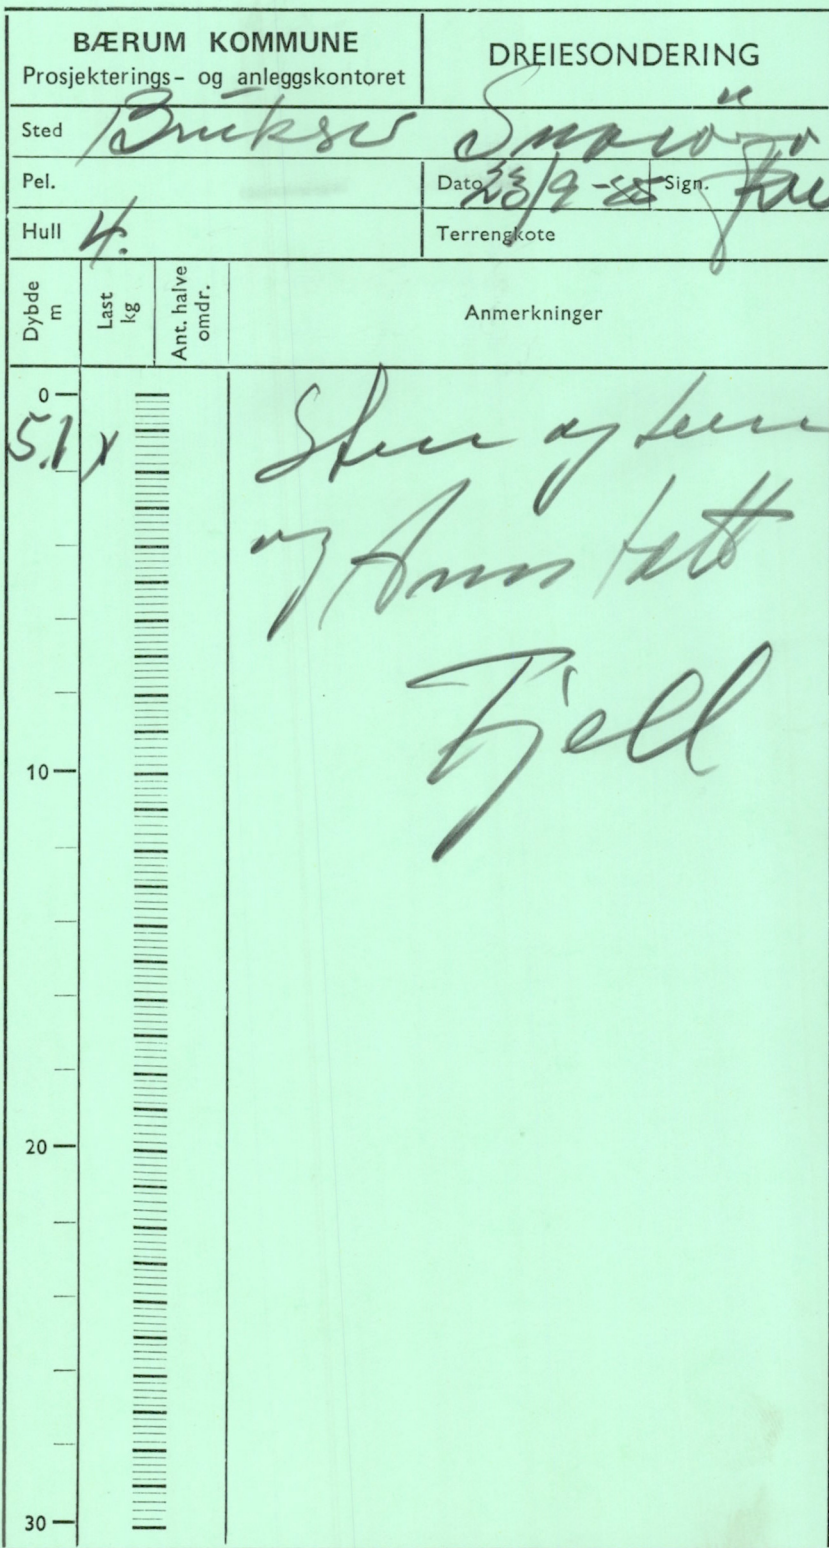 BÆRUM KOMMUNE
Prosjekterings- og anleggskontoret
DREIESONDERING
Sted
Pel.
Dato 23/9-85 Sign.
Hull 4.
Terrengkote
Dybde m
Last kg
Ant. halve omdr.
Anmerkninger
0
5.1 x
Sten og
og
Fjell
10
20
30